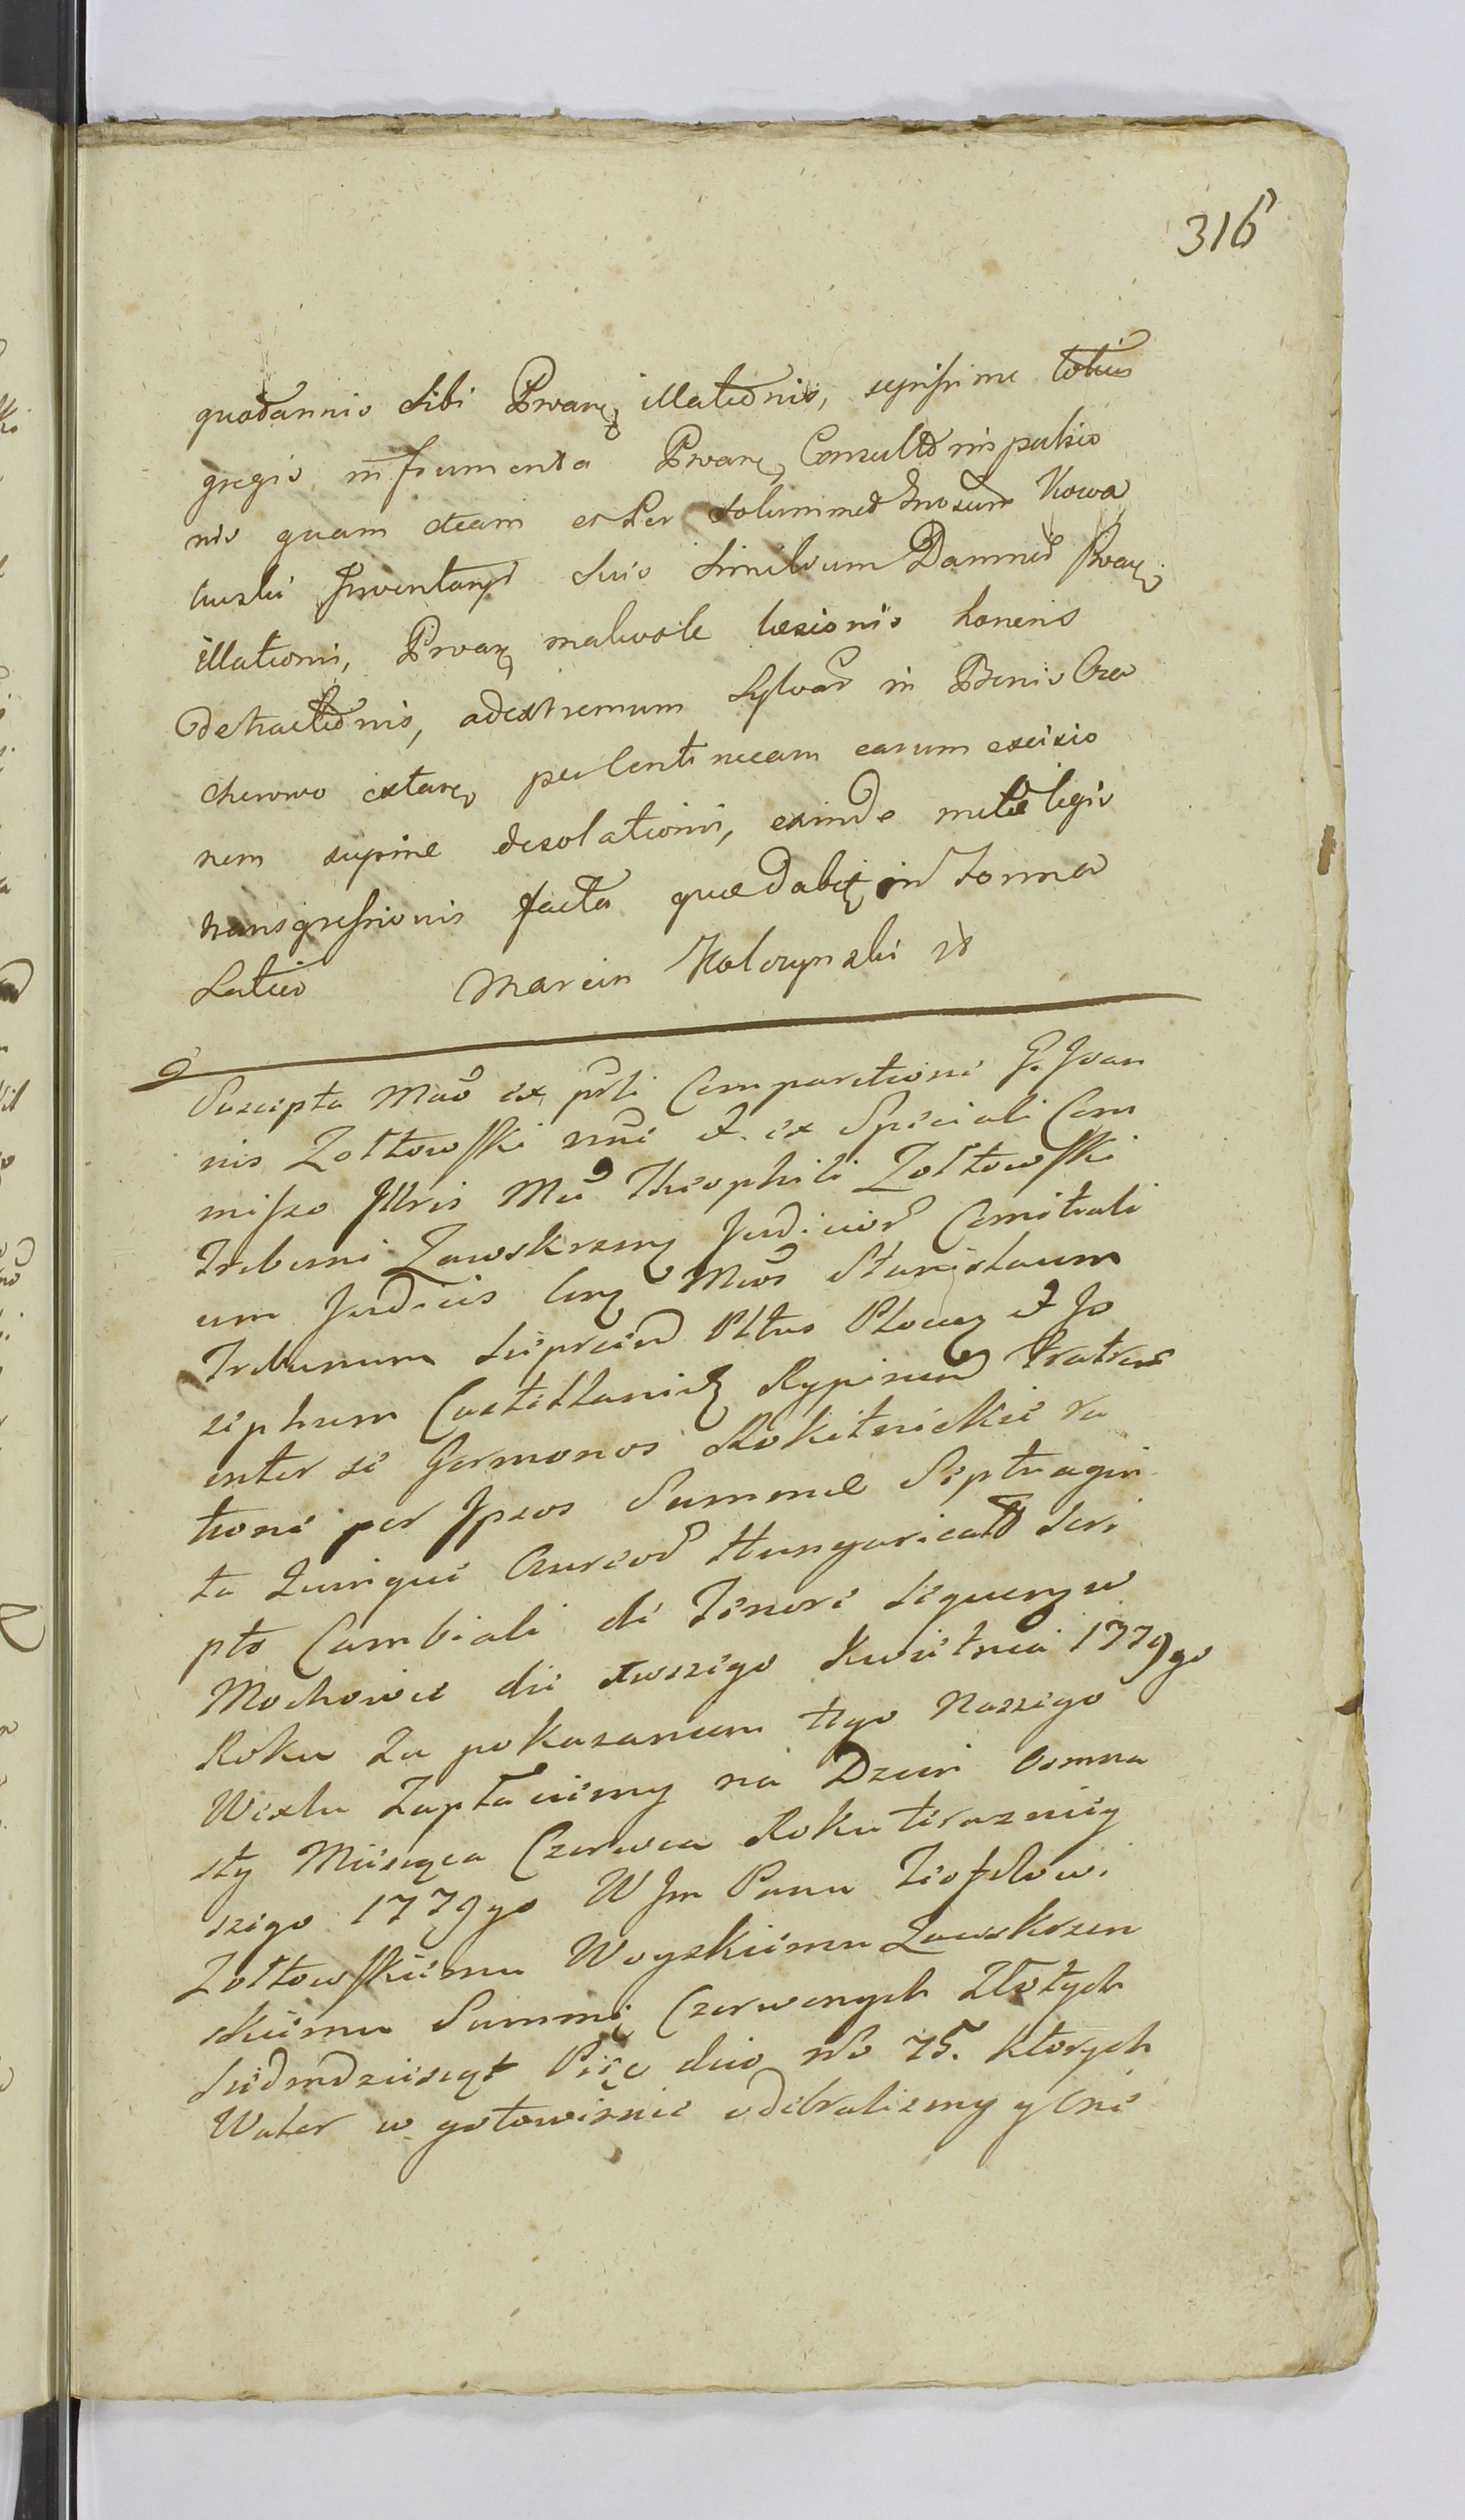 316
quotannis sibi Pwarę illationis, sepissime totius
gregis in frumenta Pwarę Consulto impulsio
nis quam etiam ex Per solummodo Kowa
luski Inventary suis similium Damnor Pwarę
illationi, Pwarę malevole læsionis honoris
detractionis, adextremum Sylvar in Bonis Orze
chowo extarę per lentinecam earum excisio
nem supine desolationis, exinde mulæ legis
transgressionis facta quædabit in Forma
Latius Marcin Kolczynski
Suscepta Mado ex prti Comparitioni G. Joan
nis Zołtowski mni et ex Speciali Com
misso Illris Mci Theophili Zołtowski
Tribuni Zawskrzenę Judicior Comitali
um Judicis Cerę Mcos Stanislaum
Tribunum Sieprcien Płtus Płocenę et Jo
sephum Castellanidę Rypinen Fratres
inter se Germanos Rokitnickie ra
tione per Ipsos Summæ Septuagin
ta Quinque Aureor Hungaricall Scri
pto Cambiali de Tenore sequenę w
Mochowie die 1wszego Kwietnia 1779go
Roku Za pokazaniem tego Naszego
Wexlu Zapłaciemy na Dzień Osmna
sty Miesiąca Czerwca Roku terazniey
szego 1779go WJm Panu Teofilowi
Zołtowskiemu Woyskiemu Zawskrzen
skiemu Summę Czerwonych Złotych
Siedmdziesiąt Pięc dico nro 75. ktorych
Walor w gotowiznie odebralismy y one